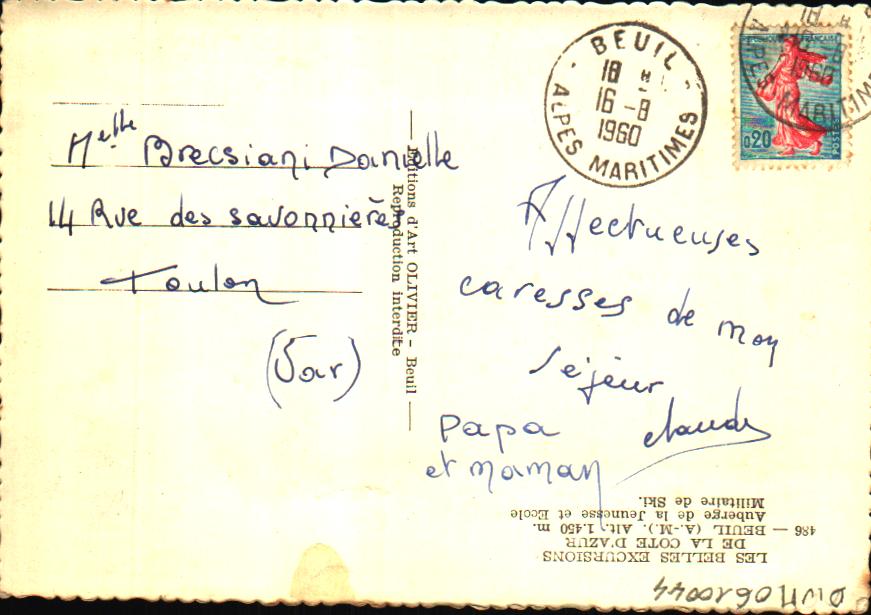 BEUIL
18 H
16 - 8
1960
ALPES MARITIMES
FRANÇAISE
0,20
POSTES
1960
ALPES MARITIMES
Melle Brecsiani Danielle
14 Rue des savonnières
Toulon
(Var)
Editions d'Art OLIVIER - Beuil
Reproduction interdite
Affectueuses
caresses de mon
séjour
Papa Claude
et maman
LES BELLES EXCURSIONS
DE LA COTE D'AZUR
486 — BEUIL (A.-M.). Alt. 1.450 m.
Auberge de la Jeunesse et Ecole
Militaire de Ski.